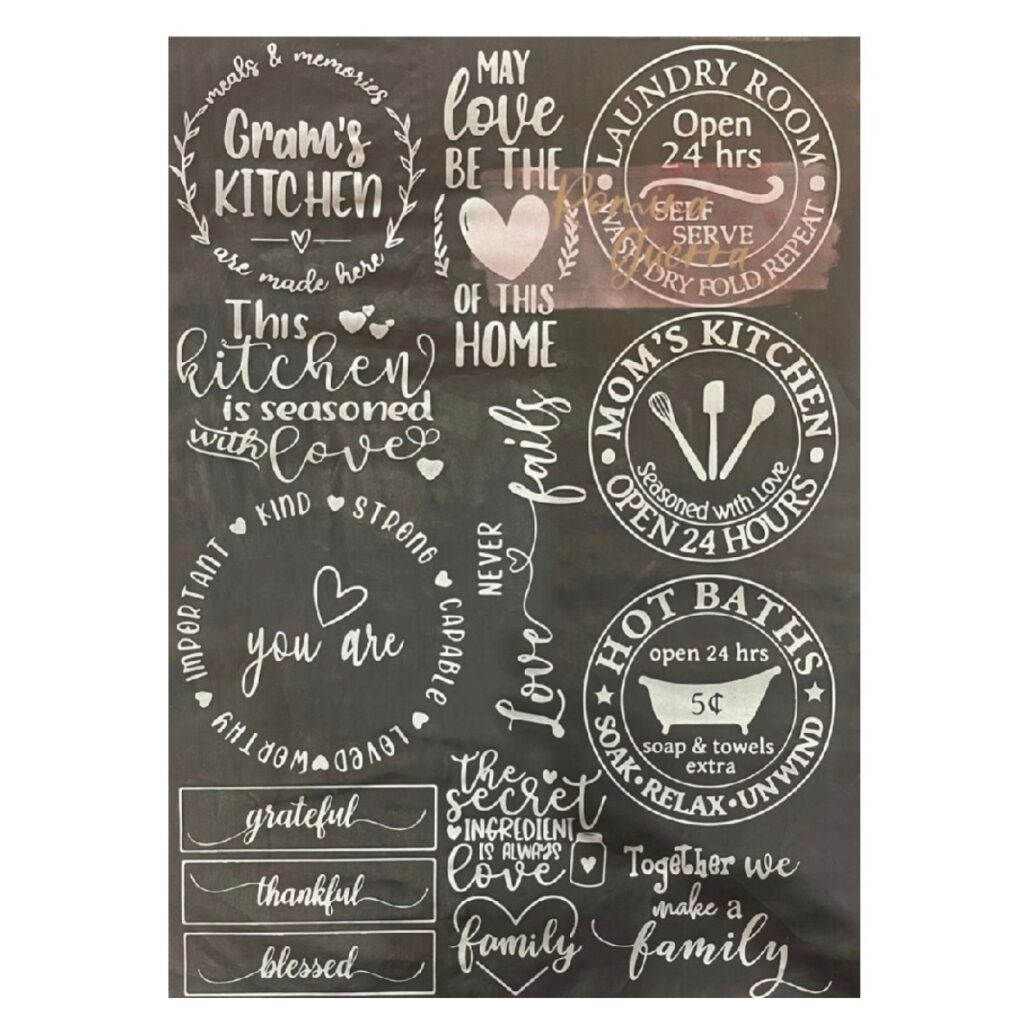 meals & memories
Gram's
KITCHEN
are made here
MAY
love
BE THE
OF THIS
HOME
LAUNDRY ROOM
Open
24 hrs
SELF
SERVE
WASH DRY FOLD REPEAT
Romina
Guerra
This
kitchen
is seasoned
with love
MOM'S KITCHEN
Seasoned with Love
OPEN 24 HOURS
Love NEVER fails
KIND STRONG CAPABLE LOVED WORTHY IMPORTANT
you are
HOT BATHS
open 24 hrs
5¢
soap & towels
extra
SOAK • RELAX • UNWIND
grateful
thankful
blessed
the
secret
INGREDIENT
IS ALWAYS
love
family
Together we
make a
family